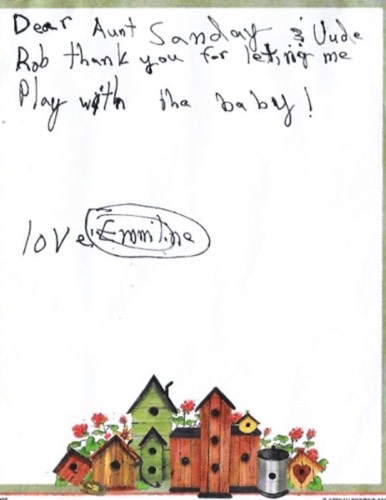 Dear Aunt Sanday & Uude
Rob thank you for leting me
Play with the baby!
love Emmiline